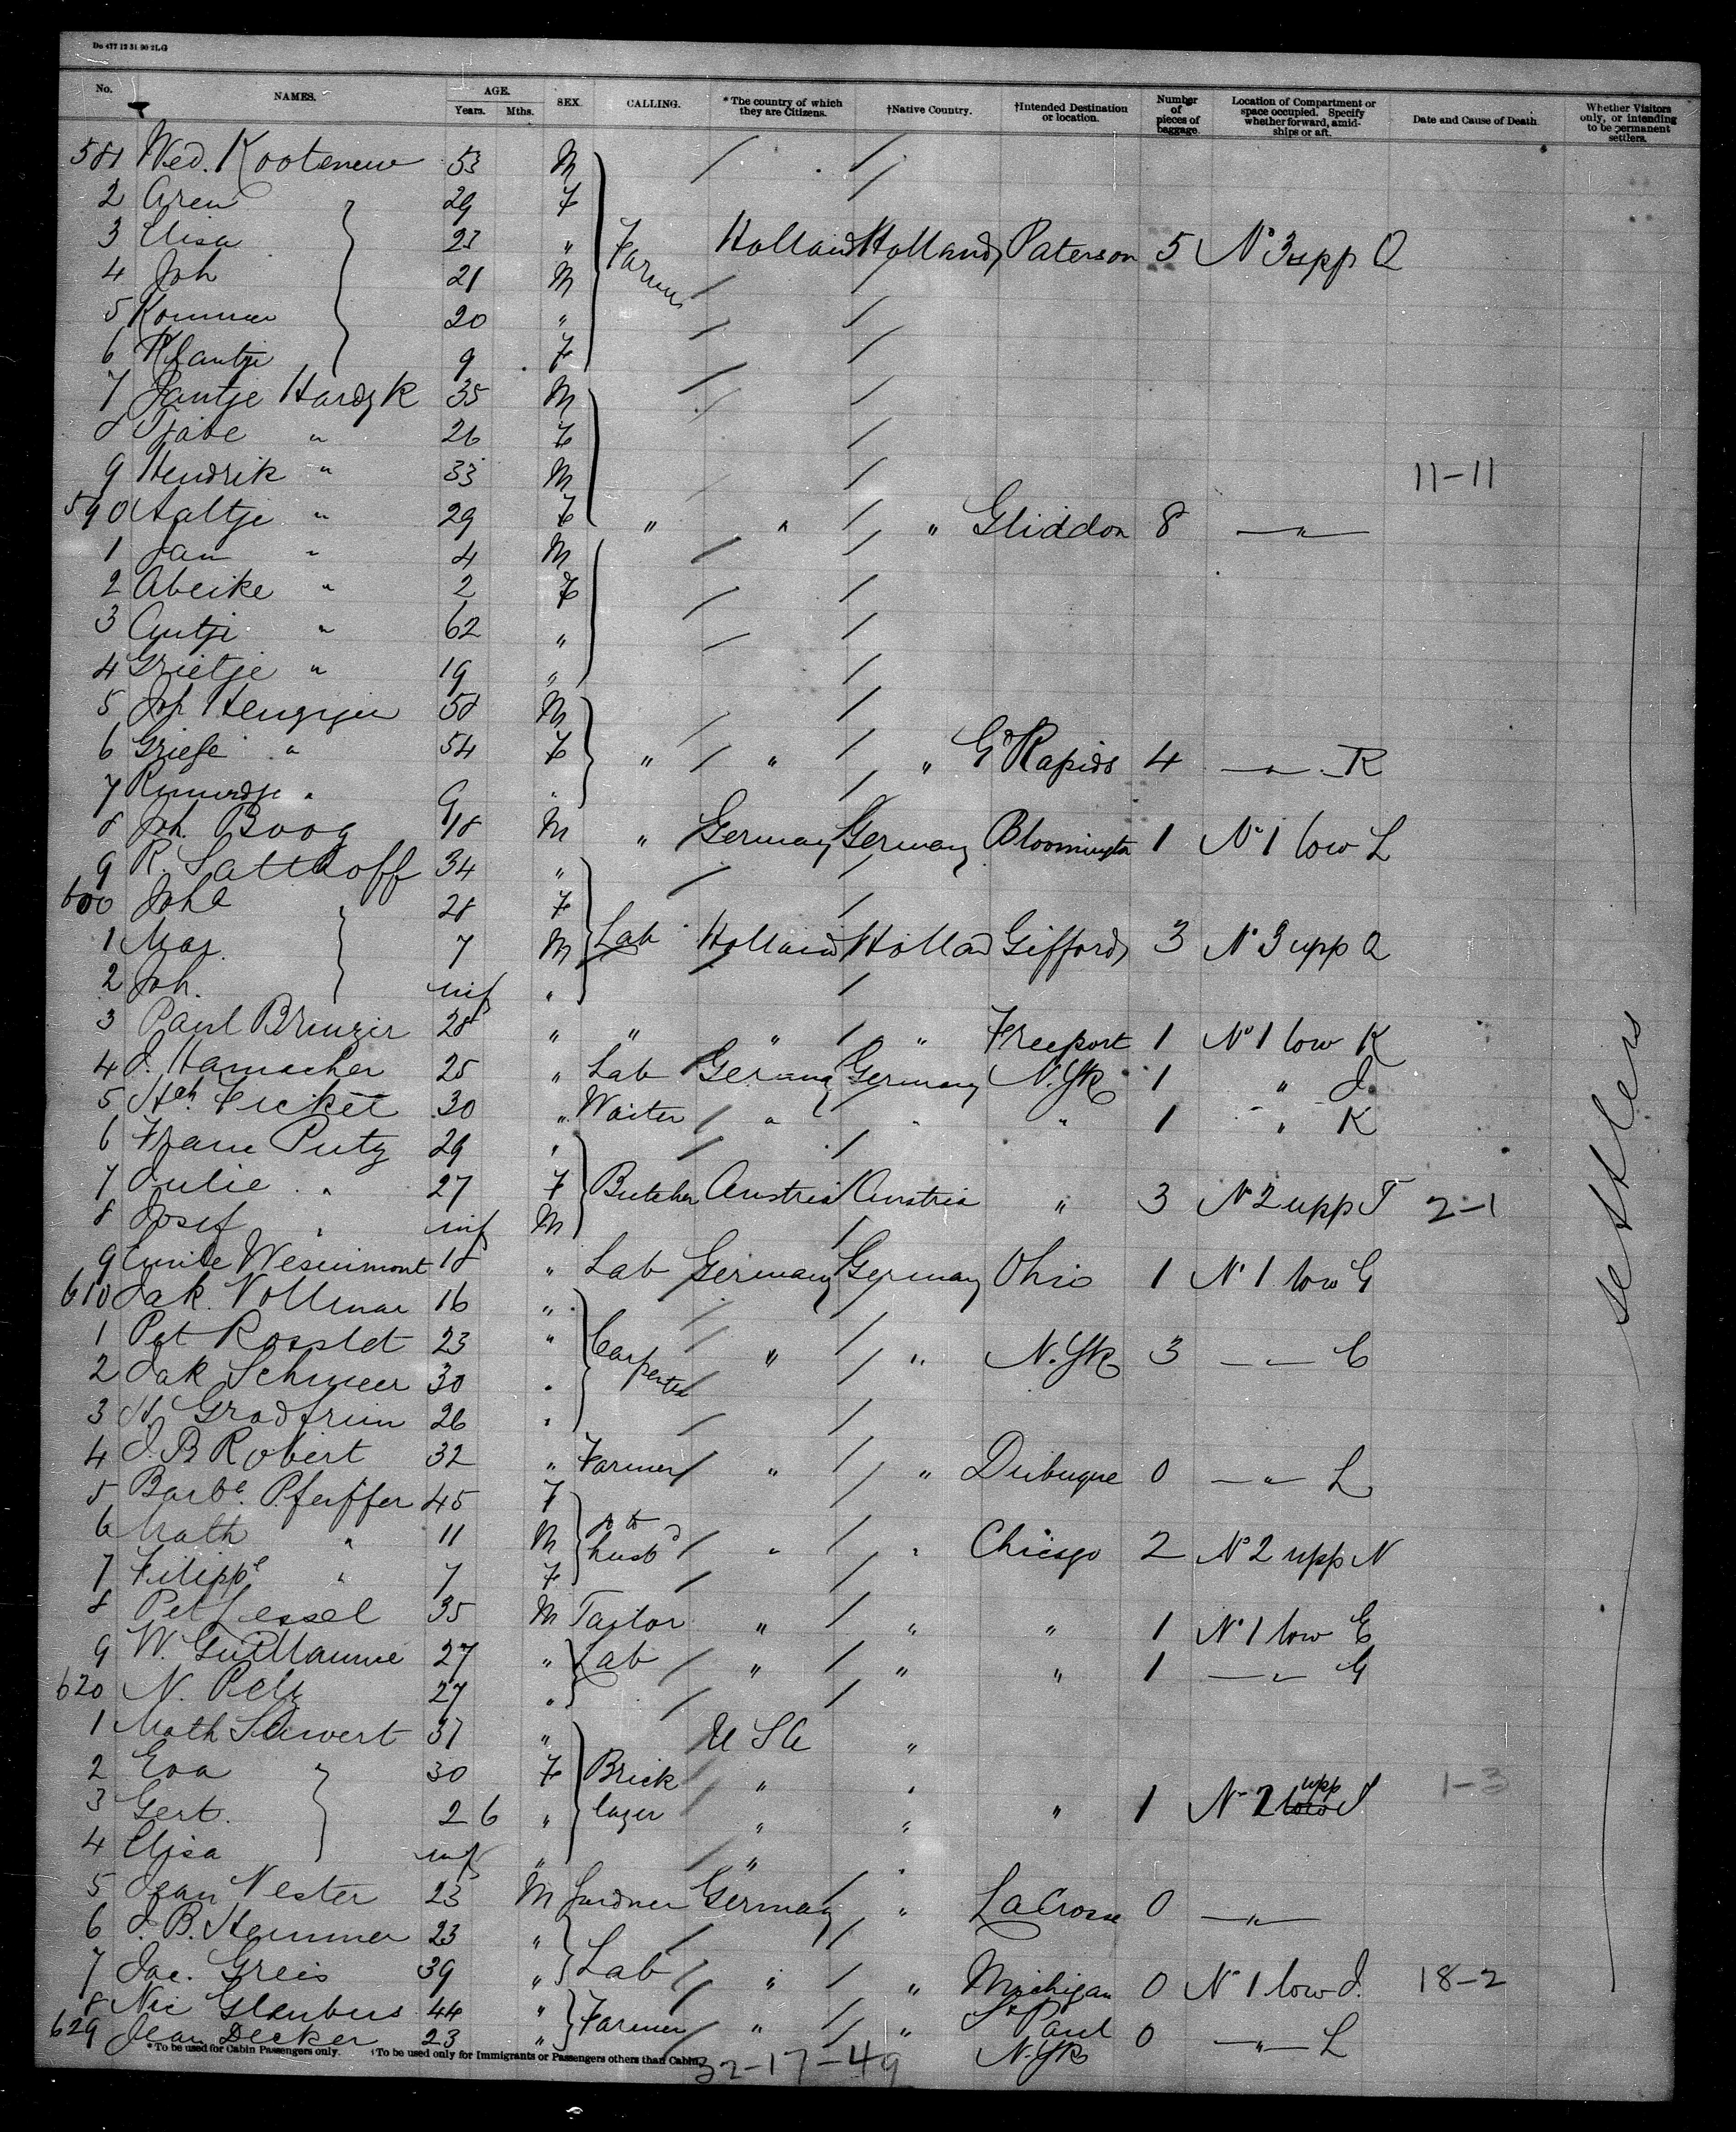 Do 477 12 31 90 2LG
No. NAMES. AGE. Years. Mths. SEX. CALLING. *The country of which they are Citizens. †Native Country. †Intended Destination or location. Number of pieces of baggage. Location of Compartment or space occupied. Specify whether forward, amidships or aft. Date and Cause of Death. Whether Visitors only, or intending to be permanent settlers.
581 Wed. 53 M
2 Aren 29 F
3 Elisa 23 " Farmer Holland Holland Paterson 5 No 3 upp Q
4 Joh 21 M
5 20 "
6 9 F
7 Jantje Hardyk 35 M
8 Tjabe " 26 F
9 Hendrik " 33 M 11-11
590 Aaltje " 29 F " " " Gliddon 8 — " —
1 Jan " 4 M
2 Abeike " 2 F
3 Antje " 62 "
4 Grietje " 19 "
5 Joh 58 M
6 " 54 F " " " Gd Rapids 4 — " — R
7 " 9 "
8 Joh. Boog 18 M " Germany Germany Bloomington 1 No 1 low L
9 R. Satthoff 34 "
600 Joha 28 F
1 Mar. 7 M Lab Holland Holland Gifford 3 No 3 upp Q
2 Joh. inf "
3 Paul 28 " " " " Freeport 1 No 1 low K
4 J. Hamacher 25 " Lab Germany Germany N. Yk 1 " J
5 Hch. 30 " Waiter " " " 1 " K
6 Franz Putz 29 "
7 Julie " 27 F Butcher Austria Austria " 3 No 2 upp T 2-1
8 Josef " inf M
9 Emile 18 " Lab Germany Germany Ohio 1 No 1 low G
610 Jak. Vollmar 16 "
1 Pet 23 " Carpenter " " N. Yk 3 — " — C
2 Jak 30 "
3 26 "
4 J. B Robert 32 " Farmer " " Dubuque 0 — " — L
5 Barba. Pfeiffer 45 F
6 Math " 11 M to husbd " " Chicago 2 No 2 upp N
7 Filippe " 7 F
8 Pet Lessel 35 M Taylor " " " 1 No 1 low E
9 W. Guillaume 27 " Lab " " " 1 — " — G
620 N. 27 "
1 Math 37 " U S A "
2 Eva " 30 F Brick " "
3 Gert. 2 6 " layer " " " 1 No 2 low upp J 1-3
4 Elisa inf " " "
5 Jean Nester 23 M Gardner Germany " LaCrosse 0 — " —
6 J. B. Hammer 23 "
7 Jac. Greis 39 " Lab " " Michigan 0 No 1 low J. 18-2
8 Nic 44 " Farmer " " St Paul 0 — " — L
629 Jean Decker 23 " N. Yk
settlers
*To be used for Cabin Passengers only. †To be used only for Immigrants or Passengers others than Cabin.
32-17-49